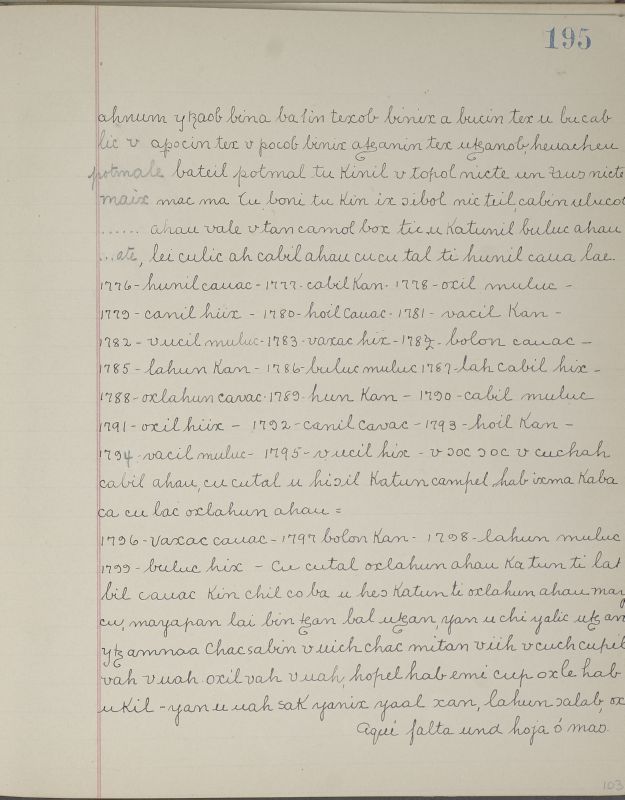 195
ahnum y ꜩaob bina balin texob binix a bucin tex u bucab
lic v apocin tex v pocob binix aꜩanin tex uꜩanob, heuacheu
potmale bateil potmal tu Kinil v topol nicte un nicte
maix mac ma tu boni tu Kin ix ɔibol nic teil, cabin ulucob
...... ahau vale v tan camol box tic u Katunil buluc ahau
...ate, lei culic ah cabil ahau cu cu tal ti hunil caua lae.
1776 - hunil cauac - 1777 - cabil Kan - 1778 - oxil muluc -
1779 - canil hiix - 1780 - hoil Cauac - 1781 - vacil Kan -
1782 - vucil muluc - 1783 - vaxac hix - 1784 - bolon cauac -
1785 - lahun Kan - 1786 - buluc muluc 1787 - lah cabil hix -
1788 - oxlahun cavac - 1789 - hun Kan - 1790 - cabil muluc
1791 - oxil hiix - 1792 - canil cavac - 1793 - hoil Kan -
1794 - vacil muluc - 1795 - vucil hix - v ɔoc ɔoc v cuchah
cabil ahau, cu cutal u hiɔil Katun campel, hab ixma Kaba
ca cu lac oxlahun ahau =
1796 - vaxac cauac - 1797 bolon Kan - 1798 - lahun muluc
1799 - buluc hix - Cu cutal oxlahun ahau Katun ti lat
bil cauac Kin chil co ba u heɔ Katun ti oxlahun ahau may
cu, mayapan lai bin ꜩan bal uꜩan, yan u chi yalic uꜩan
yꜩamnaa Chac sabin v uich chac mitan viih v cuch cupil
vah v uah oxil vah v uah, hopel hab emi cup oxle hab
u Kil - yan u uah sak yanix yaal xan, lahun ɔalab, ox
Aqui falta una hoja ó mas.
103